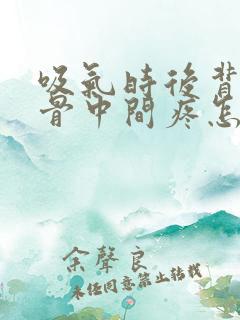 吸氣時後背
骨中間疼怎
余聲良
未经同意禁止转载